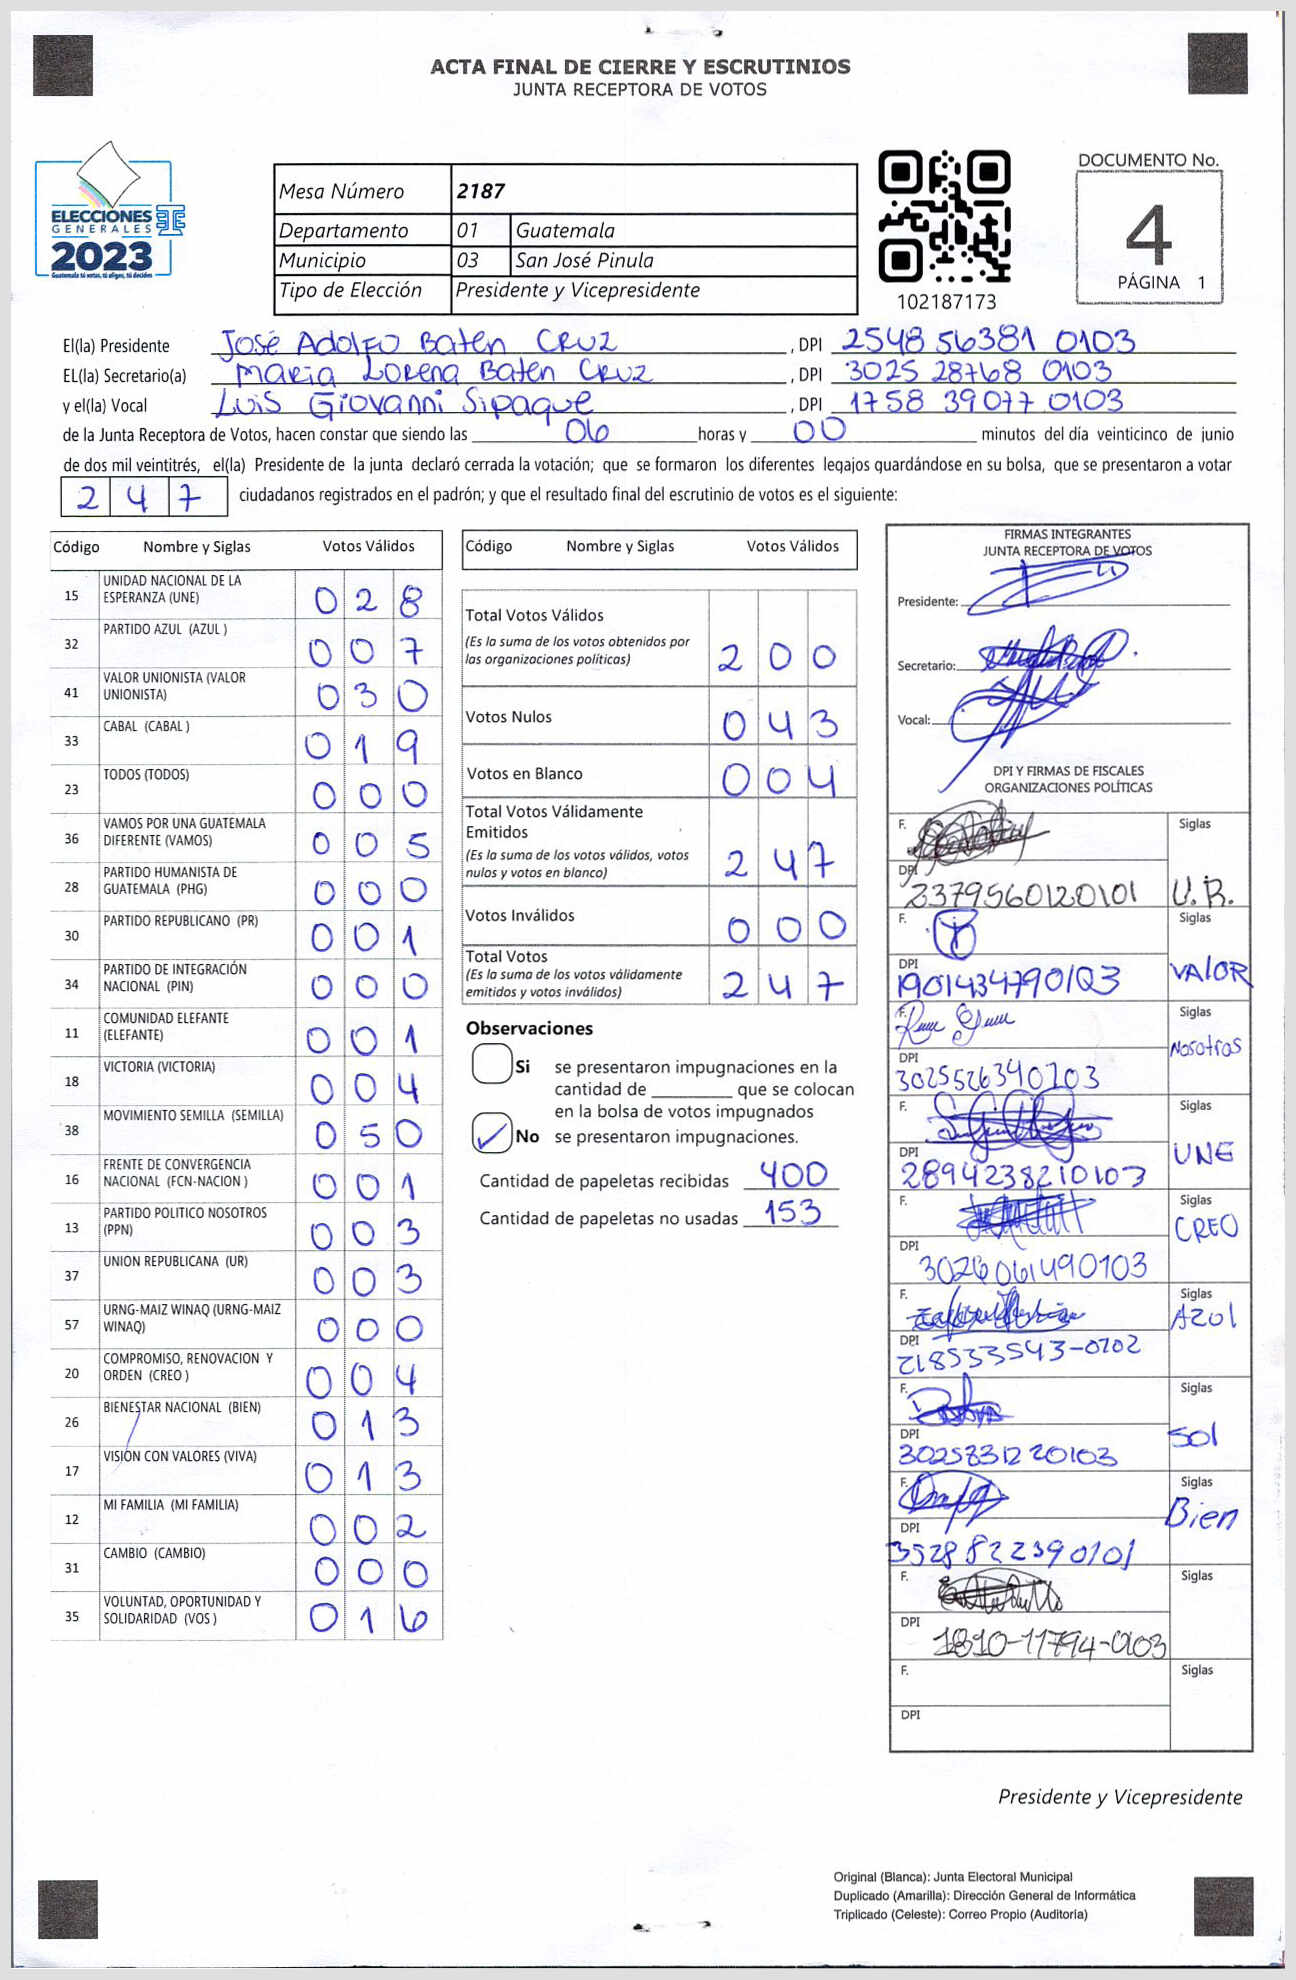 ACTA FINAL DE CIERRE Y ESCRUTINIOS
JUNTA RECEPTORA DE VOTOS
ELECCIONES
GENERALES
2023
Guatemala tú votas, tú eliges, tú decides
Mesa Número 2187
Departamento 01 Guatemala
Municipio 03 San José Pinula
Tipo de Elección Presidente y Vicepresidente
102187173
DOCUMENTO No.
4
PÁGINA 1
El(la) Presidente José Adolfo Baten Cruz, DPI 2548 56381 0103
EL(la) Secretario(a) Maria Lorena Baten Cruz, DPI 3025 28768 0103
y el(la) Vocal Luis Giovanni Sipaque, DPI 1758 39077 0103
de la Junta Receptora de Votos, hacen constar que siendo las 06 horas y 00 minutos del día veinticinco de junio
de dos mil veintitrés, el(la) Presidente de la junta declaró cerrada la votación; que se formaron los diferentes legajos guardándose en su bolsa, que se presentaron a votar
247 ciudadanos registrados en el padrón; y que el resultado final del escrutinio de votos es el siguiente:
Código Nombre y Siglas Votos Válidos
15 UNIDAD NACIONAL DE LA ESPERANZA (UNE) 028
32 PARTIDO AZUL (AZUL ) 007
41 VALOR UNIONISTA (VALOR UNIONISTA) 030
33 CABAL (CABAL ) 019
23 TODOS (TODOS) 000
36 VAMOS POR UNA GUATEMALA DIFERENTE (VAMOS) 005
28 PARTIDO HUMANISTA DE GUATEMALA (PHG) 000
30 PARTIDO REPUBLICANO (PR) 001
34 PARTIDO DE INTEGRACIÓN NACIONAL (PIN) 000
11 COMUNIDAD ELEFANTE (ELEFANTE) 001
18 VICTORIA (VICTORIA) 004
38 MOVIMIENTO SEMILLA (SEMILLA) 050
16 FRENTE DE CONVERGENCIA NACIONAL (FCN-NACION ) 001
13 PARTIDO POLITICO NOSOTROS (PPN) 003
37 UNION REPUBLICANA (UR) 003
57 URNG-MAIZ WINAQ (URNG-MAIZ WINAQ) 000
20 COMPROMISO, RENOVACION Y ORDEN (CREO ) 004
26 BIENESTAR NACIONAL (BIEN) 013
17 VISIÓN CON VALORES (VIVA) 013
12 MI FAMILIA (MI FAMILIA) 002
31 CAMBIO (CAMBIO) 000
35 VOLUNTAD, OPORTUNIDAD Y SOLIDARIDAD (VOS ) 016
Código Nombre y Siglas Votos Válidos
Total Votos Válidos
(Es la suma de los votos obtenidos por las organizaciones políticas) 200
Votos Nulos 043
Votos en Blanco 004
Total Votos Válidamente Emitidos
(Es la suma de los votos válidos, votos nulos y votos en blanco) 247
Votos Inválidos 000
Total Votos
(Es la suma de los votos válidamente emitidos y votos inválidos) 247
Observaciones
Si se presentaron impugnaciones en la
cantidad de ________ que se colocan
en la bolsa de votos impugnados
No se presentaron impugnaciones.
Cantidad de papeletas recibidas 400
Cantidad de papeletas no usadas 153
FIRMAS INTEGRANTES
JUNTA RECEPTORA DE VOTOS
Presidente:
Secretario:
Vocal:
DPI Y FIRMAS DE FISCALES
ORGANIZACIONES POLÍTICAS
F. Siglas
DPI 2379560120101 U.R.
F. Siglas
DPI 1901434790103 VALOR
F. Siglas
DPI 3025526340103 Nosotros
F. Siglas
DPI 2894238210103 UNE
F. Siglas
DPI 3026061490103 CREO
F. Siglas
DPI 218533543-0102 AZUl
F. Siglas
DPI 3025831220103 Sol
F. Siglas
DPI 3528822390101 Bien
F. Siglas
DPI 1810-11794-0103
F. Siglas
DPI
Presidente y Vicepresidente
Original (Blanca): Junta Electoral Municipal
Duplicado (Amarilla): Dirección General de Informática
Triplicado (Celeste): Correo Propio (Auditoría)